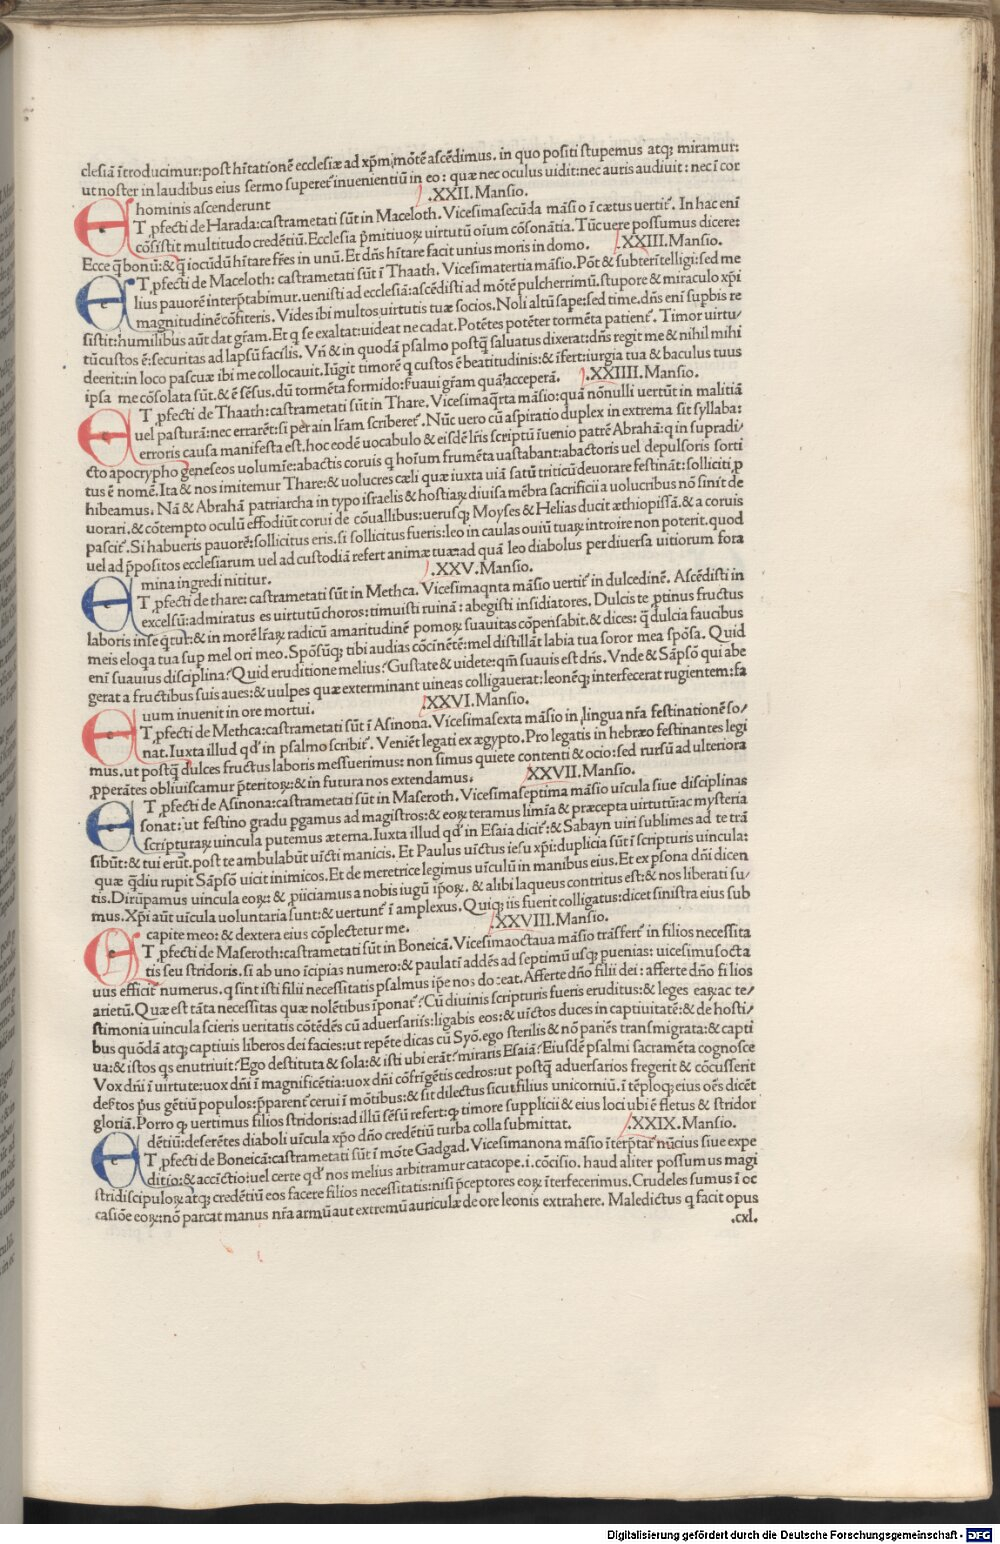 clesiā ītroducimur: post hītationē ecclesiæ ad xp̄m mōtē ascēdimus. in quo positi stupemus atq; miramur:
ut noster in laudibus eius sermo superet̄ inuenientiū in eo: quæ nec oculus uidit: nec auris audiuit: nec ī cor
hominis ascenderunt .XXII. Mansio.
ET p̱fecti de Harada: castrametati sūt in Maceloth. Vicesimasecūda māsio ī cætus uertit̄. In hac enī
cōsistit multitudo credētiū. Ecclesia p̄mitiuoꝝ uirtutū oīum cōsonātia. Tūc uere possumus dicere:
Ecce q̄ bonū: & q̄ iocūdū hītare fr̄es in unū. Et dn̄s hītare facit unius moris in domo. .XXIII. Mansio.
ET p̱fecti de Maceloth: castrametati sūt ī Thaath. Vicesimatertia māsio. Pōt & subter īтelligi: sed me
lius pauorē interp̄tabimur. uenisti ad ecclesiā: ascēdisti ad mōtē pulcherrimū. stupore & miraculo xp̄i
magnitudinē cōfiteris. Vides ibi multos uirtutis tuæ socios. Noli altū sape: sed time. dn̄s enī sup̱bis re
sistit: humilibus aūt dat gr̄am. Et q se exaltat: uideat ne cadat. Potētes potēter tormēta patient̄. Timor uirtu/
tū custos ē: securitas ad lapsū facilis. Vn̄ & in quodā psalmo postq̄ saluatus dixerat: dn̄s regit me & nihil mihi
deerit: in loco pascuæ ibi me collocauit. Iūgit timorē q custos ē beatitudinis: & īfert: iurgia tua & baculus tuus
ipsa me cōsolata sūt. & ē sēsus. dū tormēta formido: seruaui gr̄am quā acceperā. .XXIIII. Mansio.
ET p̱fecti de Thaath: castrametati sūt in Thare. Vicesimaq̄rta māsio: quā nōnulli uertūt in malitiā
uel pasturā: nec errarēt: si per ain lr̄am scriberet̄. Nūc uero cū aspiratio duplex in extrema sit syllaba:
erroris causa manifesta est. hoc eodē uocabulo & eisdē lr̄is scriptū īuenio patrē Abrahā: q in supradi/
cto apocrypho geneseos uolumīe: abactis coruis q hoīum frumēta uastabant: abactoris uel depulsoris sorti
tus ē nomē. Ita & nos imitemur Thare: & uolucres cæli quæ iuxta uiā satū triticū deuorare festināt: solliciti p̱
hibeamus. Nā & Abrahā patriarcha in typo israelis & hostiaꝝ diuisa mēbra sacrificii a uolucribus nō sinit de
uorari. & cōtempto oculū effodiūt corui de cōuallibus: uerusq; Moyses & Helias ducit æthiopissā. & a coruis
pascit̄. Si habueris pauorē: sollicitus eris. si sollicitus fueris: leo in caulas ouiū tuaꝝ introire non poterit. quod
uel ad p̄positos ecclesiarum uel ad custodiā refert animæ tuæ: ad quā leo diabolus per diuersa uitiorum fora
mina ingredi nititur. .XXV. Mansio.
ET p̱fecti de thare: castrametati sūt in Methca. Vicesimaqnta māsio uertit̄ in dulcedinē. Ascēdisti in
excelsū: admiratus es uirtutū choros: timuisti ruinā: abegisti insidiatores. Dulcis te p̱tinus fructus
laboris insequetur: & in morē lr̄aꝝ radicū amaritudinē pomoꝝ suauitas cōpensabit. & dices: q̄ dulcia faucibus
meis eloqa tua sup mel ori meo. Spōsūq; tibi audias cōcinētē: mel distillāt labia tua soror mea spōsa. Quid
enī suauius disciplina? Quid eruditione melius? Gustate & uidete: qm̄ suauis est dn̄s. Vnde & Sāpsō qui abe
gerat a fructibus suis aues: & uulpes quæ exterminant uineas colligauerat: leonēq; interfecerat rugientem: fa
uum inuenit in ore mortui. .XXVI. Mansio.
ET p̱fecti de Methca: castrametati sūt ī Asinona. Vicesimasexta māsio in lingua nr̄a festinationē so/
nat. Iuxta illud qd' in psalmo scribit̄. Veniēt legati ex ægypto. Pro legatis in hebræo festinantes legi
mus. ut postq̄ dulces fructus laboris messuerimus: non simus quiete contenti & ocio: sed rursū ad ulteriora
p̱perātes obliuiscamur p̄teritoꝝ: & in futura nos extendamus. .XXVII. Mansio.
ET p̱fecti de Asinona: castrametati sūt in Maseroth. Vicesimaseptima māsio uīcula siue disciplinas
sonat: ut festino gradu p̱gamus ad magistros: & eoꝝ teramus limīa & præcepta uirtutū: ac mysteria
scripturaꝝ uincula putemus æterna. Iuxta illud qd' in Esaia dicit̄: & Sabayn uiri sublimes ad te trā
sibūt: & tui erūt. post te ambulabūt uīcti manicis. Et Paulus uīctus iesu xp̄i: duplicia sūt ī scripturis uincula:
quæ q̄diu rupit Sāpsō uicit inimicos. Et de meretrice legimus uīculū in manibus eius. Et ex p̱sona dn̄i dicen
tis. Dirūpamus uincula eoꝝ: & p̱iiciamus a nobis iugū ip̄oꝝ. & alibi laqueus contritus est: & nos liberati su/
mus. Xp̄i aūt uīcula uoluntaria sunt: & uertunt̄ ī amplexus. Quiq; iis fuerit colligatus: dicet sinistra eius sub
capite meo: & dextera eius cōplectetur me. .XXVIII. Mansio.
ET p̱fecti de Maseroth: castrametati sūt in Boneicā. Vicesimaoctaua māsio trāsfert̄ in filios necessita
tis seu stridoris. si ab uno īcipias numero: & paulatī addēs ad septimū usq; p̱uenias: uicesimusocta
uus efficit̄ numerus. q sint isti filii necessitatis psalmus ip̄e nos doceat. Afferte dn̄o filii dei: afferte dn̄o filios
arietū. Quæ est tāta necessitas quæ nolētibus īponat̄? Cū diuinis scripturis fueris eruditus: & leges eaꝝ ac te/
stimonia uincula scieris ueritatis cōtēdēs cū aduersariīs: ligabis eos: & uīctos duces in captiuitatē: & de hosti/
bus quōdā atq; captiuis liberos dei facies: ut repēte dicas cū Syō. ego sterilis & nō pariēs transmigrata: & capti
ua: & istos qs enutriuit? Ego destituta & sola: & isti ubi erāt? miraris Esaiā? Eiusdē psalmi sacramēta cognosce
Vox dn̄i ī uirtute: uox dn̄i ī magnificētia: uox dn̄i cōfrīgētis cedros: ut postq̄ aduersarios fregerit & cōcusserit
desertos prius gētiū populos: p̄parent̄ cerui ī mōtibus: & sit dilectus sicut filius unicorniū. ī tēploq; eius oēs dicēt
gloriā. Porro q uertimus filios stridoris: ad illū sēsū refert: q timore supplicii & eius loci ubi ē fletus & stridor
dētiū: deserētes diaboli uīcula xp̄o dn̄o credētiū turba colla submittat. .XXIX. Mansio.
ET p̱fecti de Boneicā: castrametati sūt ī mōte Gadgad. Vicesimanona māsio īterp̄tat̄ nūcius siue expe
ditio: & accīctio: uel certe qd' nos melius arbitramur catacope. i. cōcisio. haud aliter possumus magi
stri discipuloꝝ atq; credētiū eos facere filios necessitatis: nisi p̄ceptores eoꝝ īterfecerimus. Crudeles sumus ī oc
casiōe eoꝝ: nō parcat manus nr̄a armū aut extremū auriculæ de ore leonis extrahere. Maledictus q facit opus
.cxl.
Digitalisierung gefördert durch die Deutsche Forschungsgemeinschaft - DFG